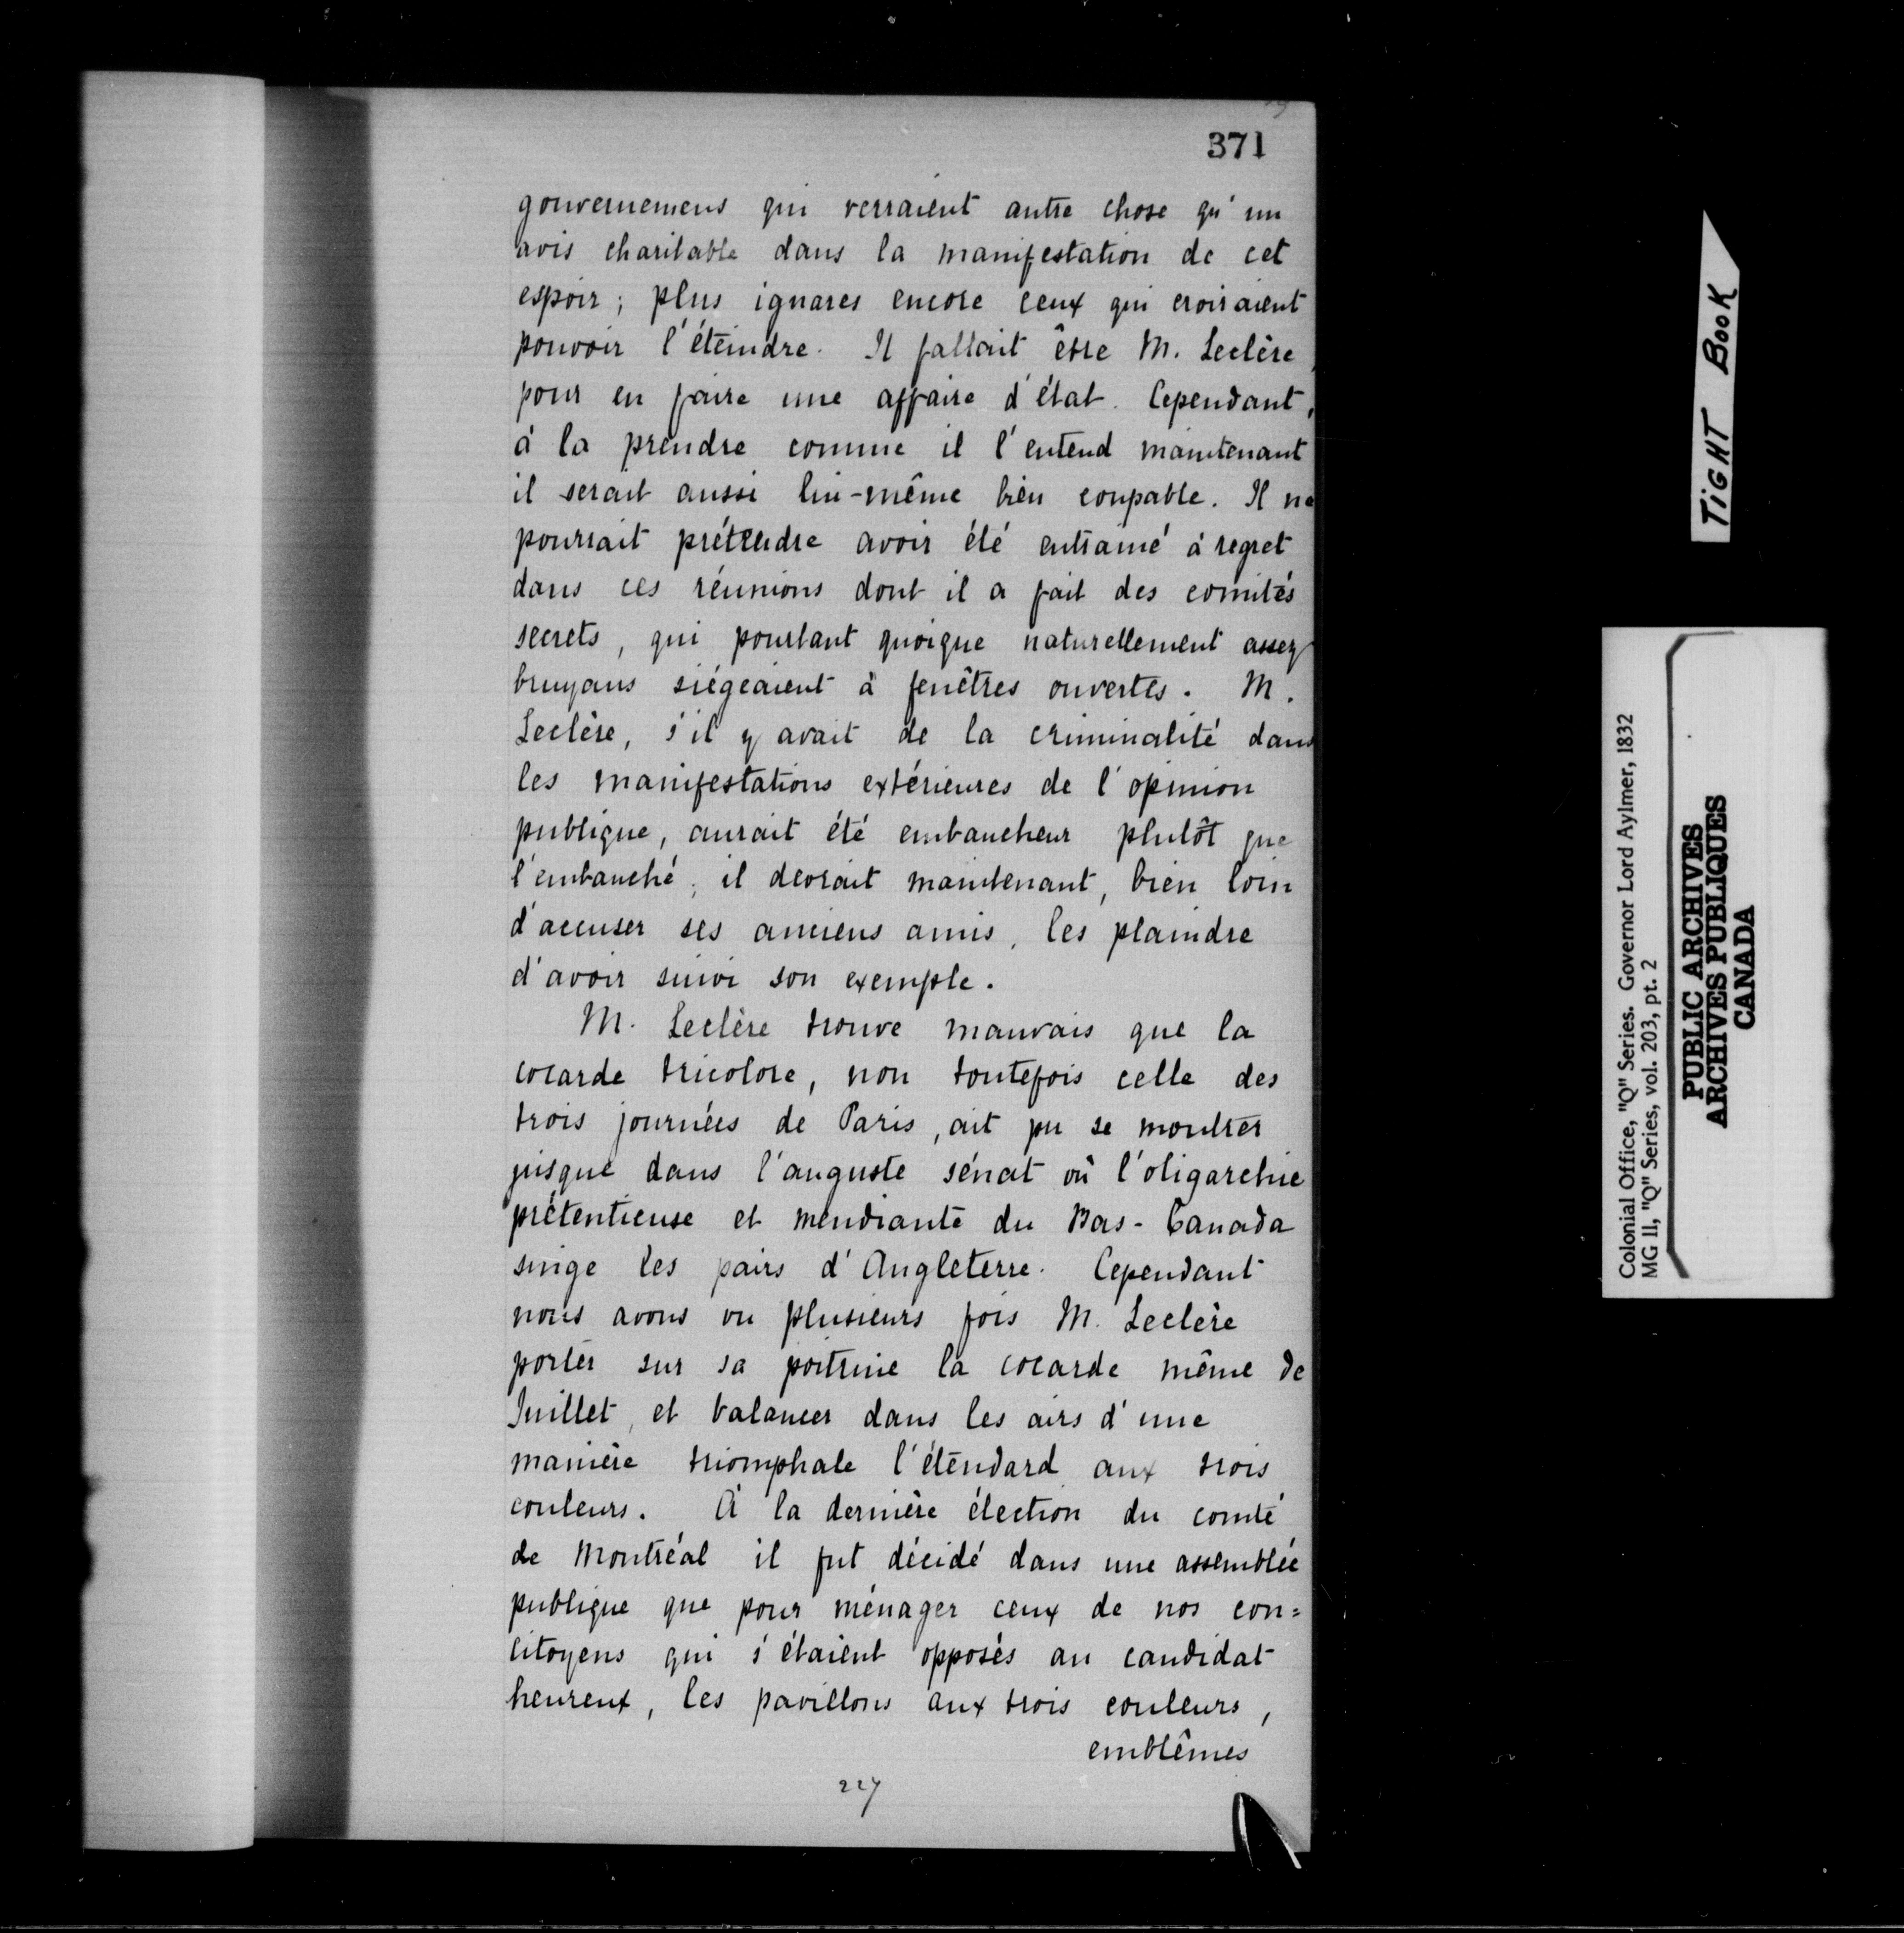 371
gouvernemens qui verraient autre chose qu'un
avis charitable dans la manifestation de cet
espoir; plus ignares encore ceux qui croiraient
pouvoir l'éteindre. Il fallait être M. Leclère
pour en faire une affaire d'état. Cependant,
à la prendre comme il l'entend maintenant
il serait aussi lui-même bien coupable. Il ne
pourrait prétendre avoir été entrainé à regret
dans ces réunions dont il a fait des comités
secrets, qui pourtant quoique naturellement assez
bruyans siégeaient à fenêtres ouvertes. M.
Leclère, s'il y avait de la criminalité dans
les manifestations extérieures de l'opinion
publique, aurait été embaucheur plutôt que
l'embauché; il devrait maintenant, bien loin
d'accuser ses anciens amis, les plaindre
d'avoir suivi son exemple.
M. Leclère trouve mauvais que la
cocarde tricolore, non toutefois celle des
trois journées de Paris, ait pu se montrer
jusque dans l'auguste sénat où l'oligarchie
prétentieuse et mendiante du Bas-Canada
singe les pairs d'Angleterre. Cependant
nous avons vu plusieurs fois M. Leclère
porter sur sa poitrine la cocarde même de
Juillet, et balancer dans les airs d'une
manière triomphale l'étendard aux trois
couleurs. À la dernière élection du comté
de Montréal il fut décidé dans une assemblée
publique que pour ménager ceux de nos con=
citoyens qui s'étaient opposés au candidat
heureux, les pavillons aux trois couleurs,
emblêmes
227
TIGHT BOOK
Colonial Office, "Q" Series. Governor Lord Aylmer, 1832
MG 11, "Q" Series, vol. 203, pt. 2
PUBLIC ARCHIVES
ARCHIVES PUBLIQUES
CANADA